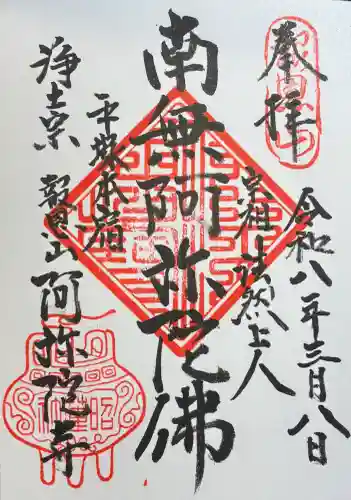 奉拝
令和八年三月八日
宗祖法然上人
南無阿弥陀佛
平塚本宿
浄土宗
報恩山阿弥陀寺